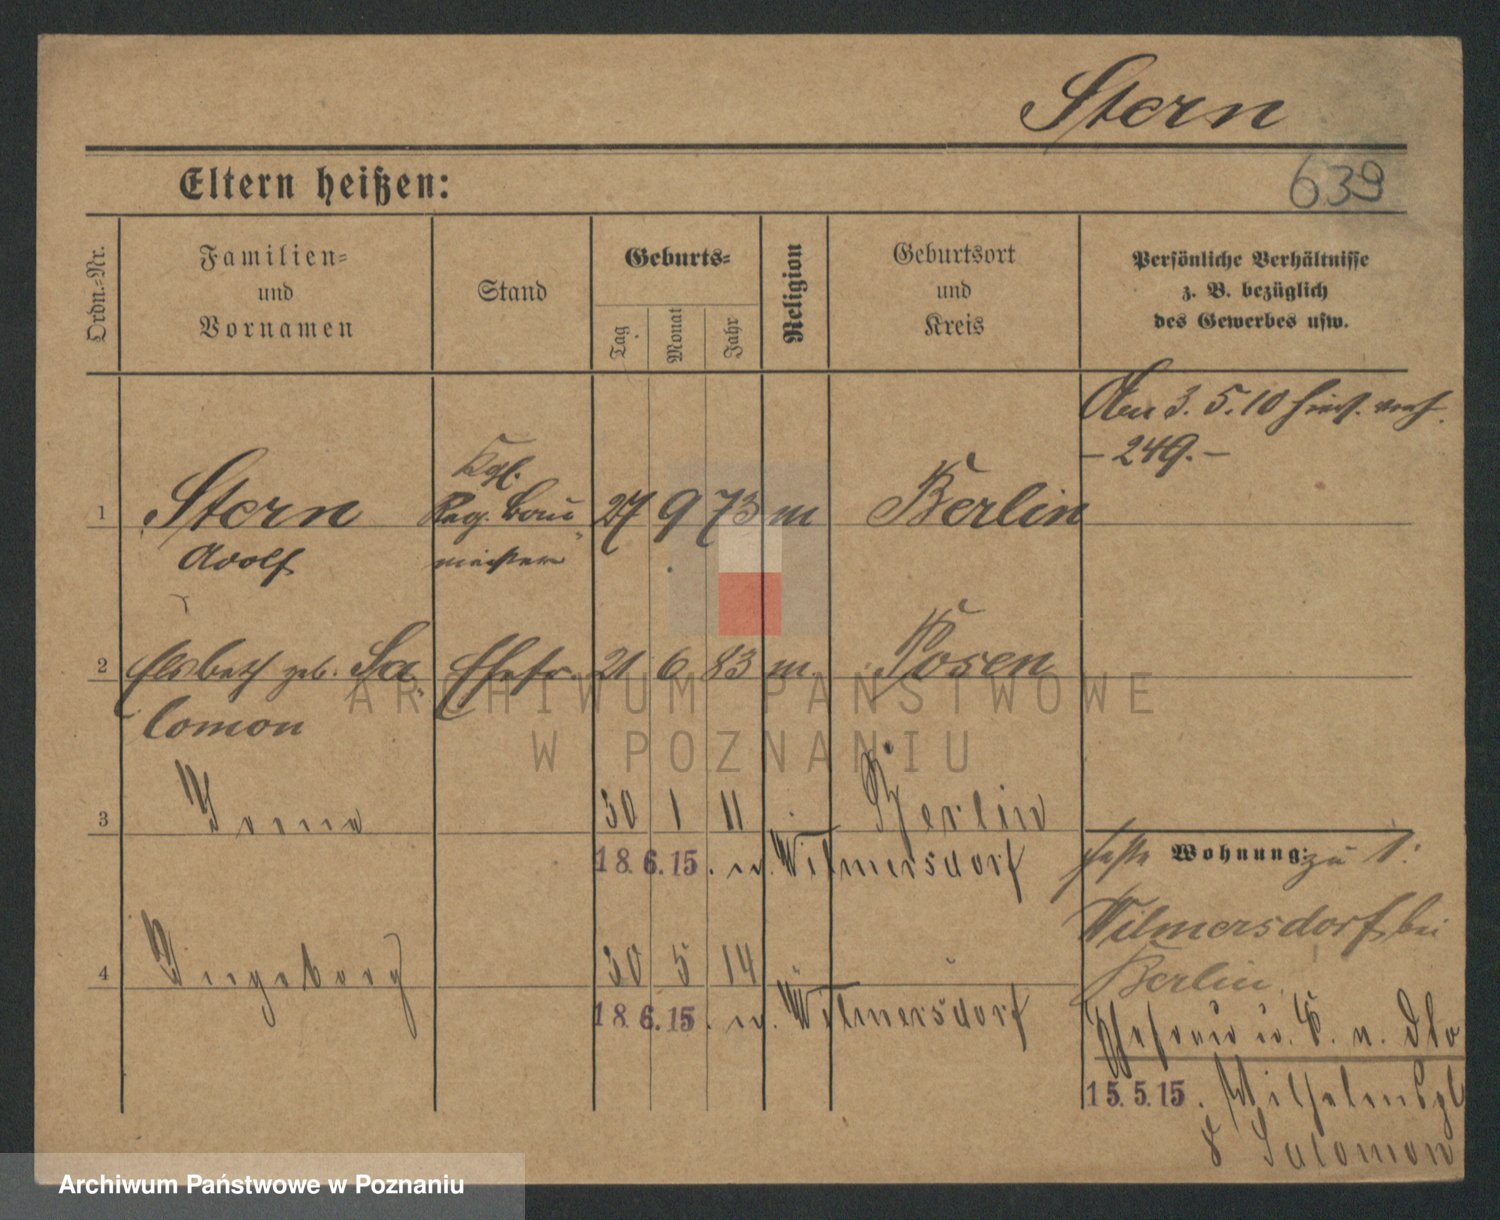 Stern
639
Eltern heißen:
Ordn.-Nr.
Familien-
und
Vornamen
Stand
Geburts-
Tag
Monat
Jahr
Religion
Geburtsort
und
Kreis
Persönliche Verhältnisse
z. B. bezüglich
des Gewerbes usw.
Am 3. 5. 10
– 249. –
Kgl.
1 Stern Reg. Bau- 27 9 73 m Berlin
Adolf meister
2 Elsbeth geb. Sa- Ehefr. 21 6 83 m. Posen
lomon
ARCHIWUM PAŃSTWOWE
W POZNANIU
3 30 1 11 Berlin
18.6.15. n. Wilmersdorf
Wohnung: zu 1:
Wilmersdorf bei
Berlin.
4 Ingeborg 30 5 14
18.6.15. n. Wilmersdorf
Ehefrau u. K. n. dto
15.5.15. Wilhelmspl
8 Salomon
Archiwum Państwowe w Poznaniu